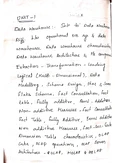 UNIT-I
Data warehouse: Intro to Data warehouse
Diff b/w operational DBs & Data
warehouse, Data warehouse characteristics
Data warehouse Architecture & its components
Extraction - Transformation - Loading
Logical (Multi-Dimensional), Data
Modelling, Schema Design, Star &
Schema, Fact Constellation, Fact
table, Fully additive, Semi additive
Non additive Measures, Fact
Fact Table, Fully Additive, Semi additive
non additive Measures, Fact-less
Dimension Table characteristics, OLAP
Cube, OLAP operations, OLAP Server
Architecture - ROLAP, MOLAP and HOLAP